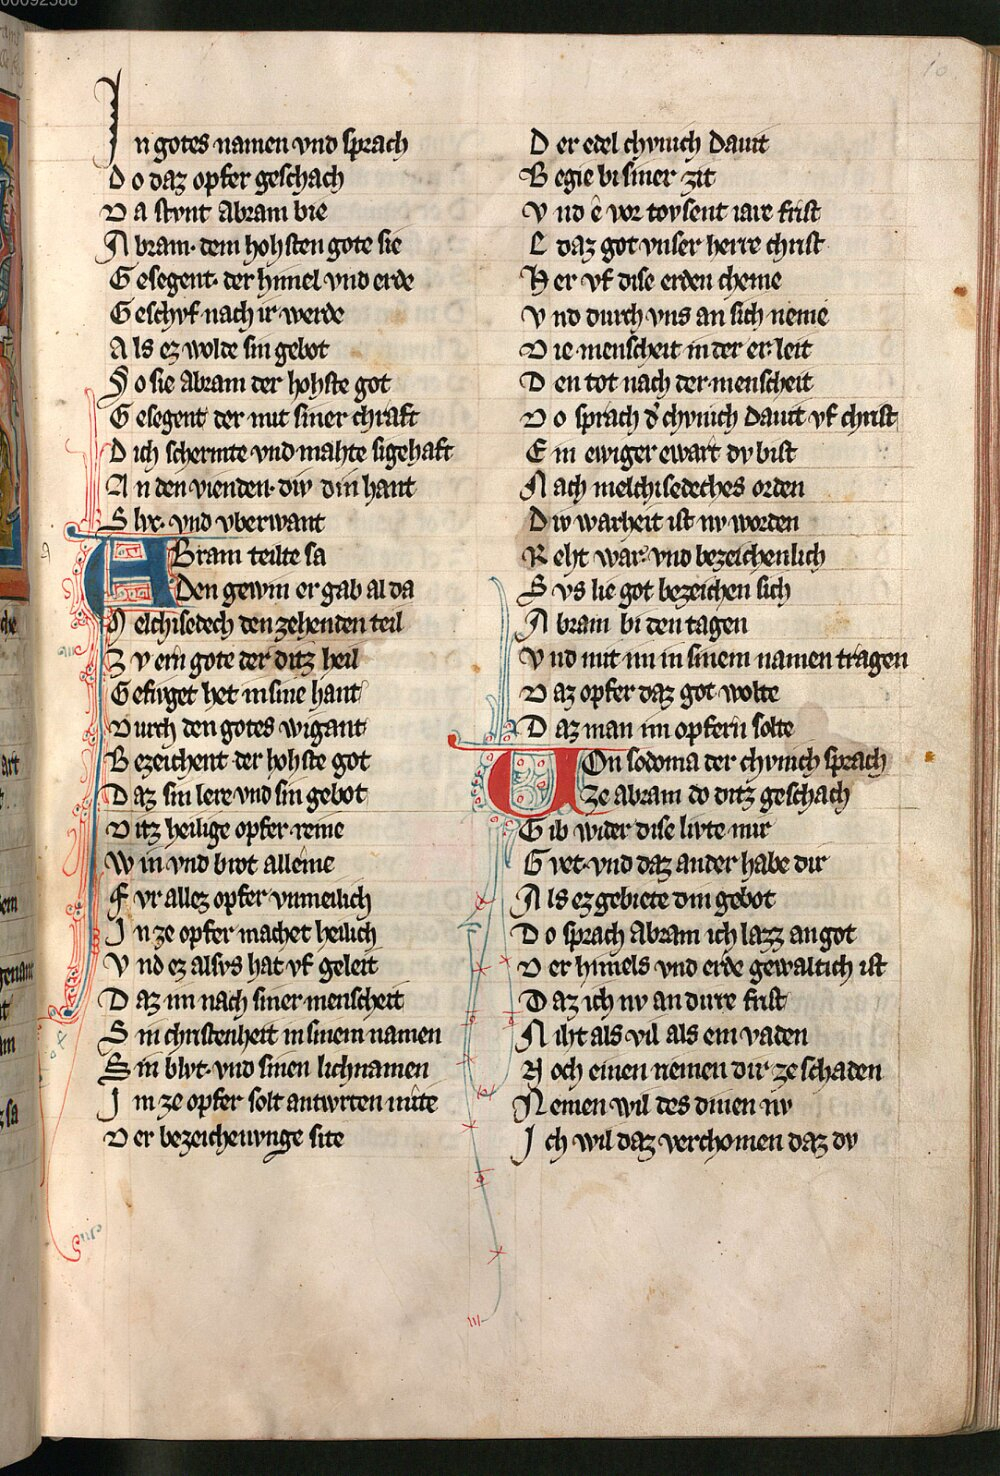 In gotes namen vnd sprach
Do daz opfer geschach
Da stvnt Abram bie
Abram· dem hohsten gote sie
Gesegent· der himel vnd erde
Geschvf nach ir werde
Als ez wolde sin gebot
So sie Abram der hohste got
Gesegent der mit siner chraft
Dich schermte vnd mahte sigehaft
An den vienden· div din hant
Slvc· vnd vberwant
ABram teilte sa
Den gewin er gab al da
Melchisedech den zehenden teil
Zv eim gote der ditz heil
Gefuget het in sine hant
Durch den gotes wigant
Bezeichent der hohste got
Daz sin lere vnd sin gebot
Ditz heilige opfer reine
Win vnd brot alleine
Fvr allez opfer vnmeilich
In ze opfer machet heilich
Vnd ez alsvs hat vf geleit
Daz im nach siner menscheit
Sin christenheit in sinem namen
Sin blvt· vnd sinen lichnamen
Im ze opfer solt antwrten mite
Der bezeichenvnge site
Der edel chvnich Dauit
Begie bi siner zit
Vnd ê vor tovsent iare frist
E daz got vnser herre christ
Her vf dise erden cheme
Vnd durch vns an sich neme
Die menscheit in der er leit
Den tot nach der menscheit
Do sprach d̕ chvnich Dauit vf christ
Ein ewiger ewart dv bist
Nach melchisedeches orden
Div warheit ist nv worden
Reht war· vnd bezeichenlich
Svs lie got bezeichen sich
Abram bi den tagen
Vnd mit im in sinem namen tragen
Daz opfer daz got wolte
Daz man im opfern solte
VOn sodoma der chvnich sprach
Ze abram do ditz geschach
Gib wider dise livte mir
Gvet· vnd daz ander habe dir
Als ez gebiete din gebot
Do sprach Abram ich lazz an got
Der himels vnd erde gewaltich ist
Daz ich nv an dirre frist
Niht als vil als ein vaden
Noch einen riemen dir ze schaden
Nemen wil des dinen nv
Ich wil daz verchomen daz dv